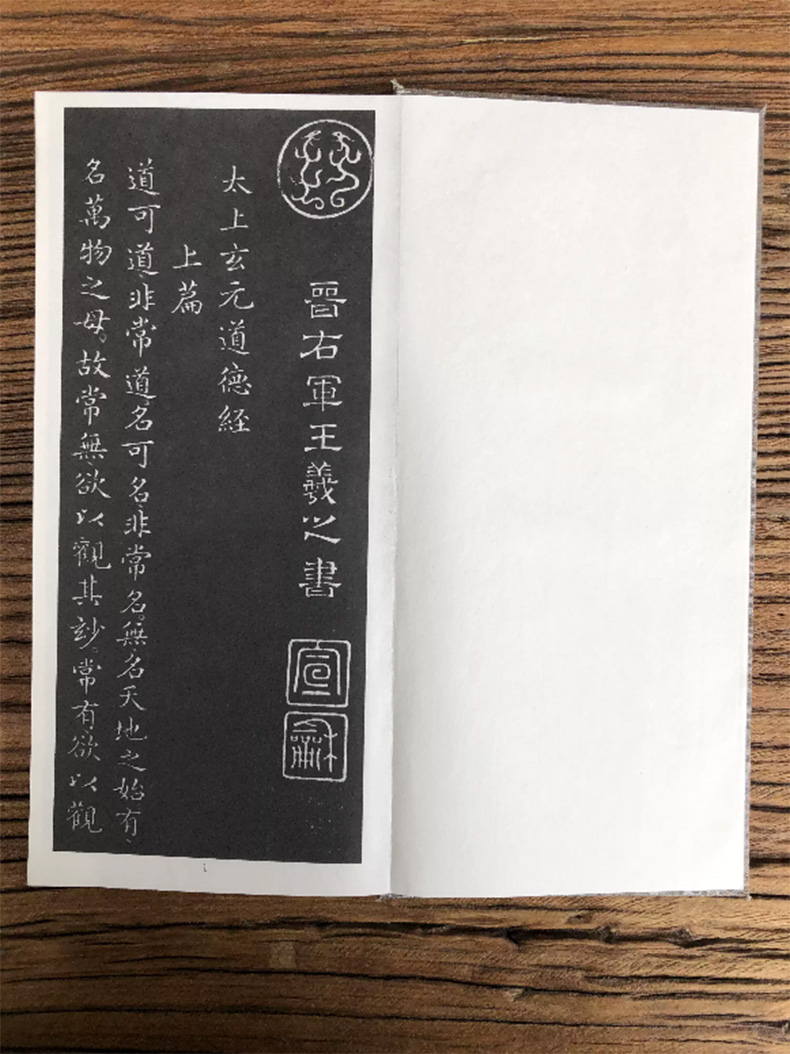 晉右軍王羲之書
宣
龢
太上玄元道德經
上篇
道可道非常道名可名非常名無名天地之始有
名萬物之母故常無欲以觀其玅常有欲以觀